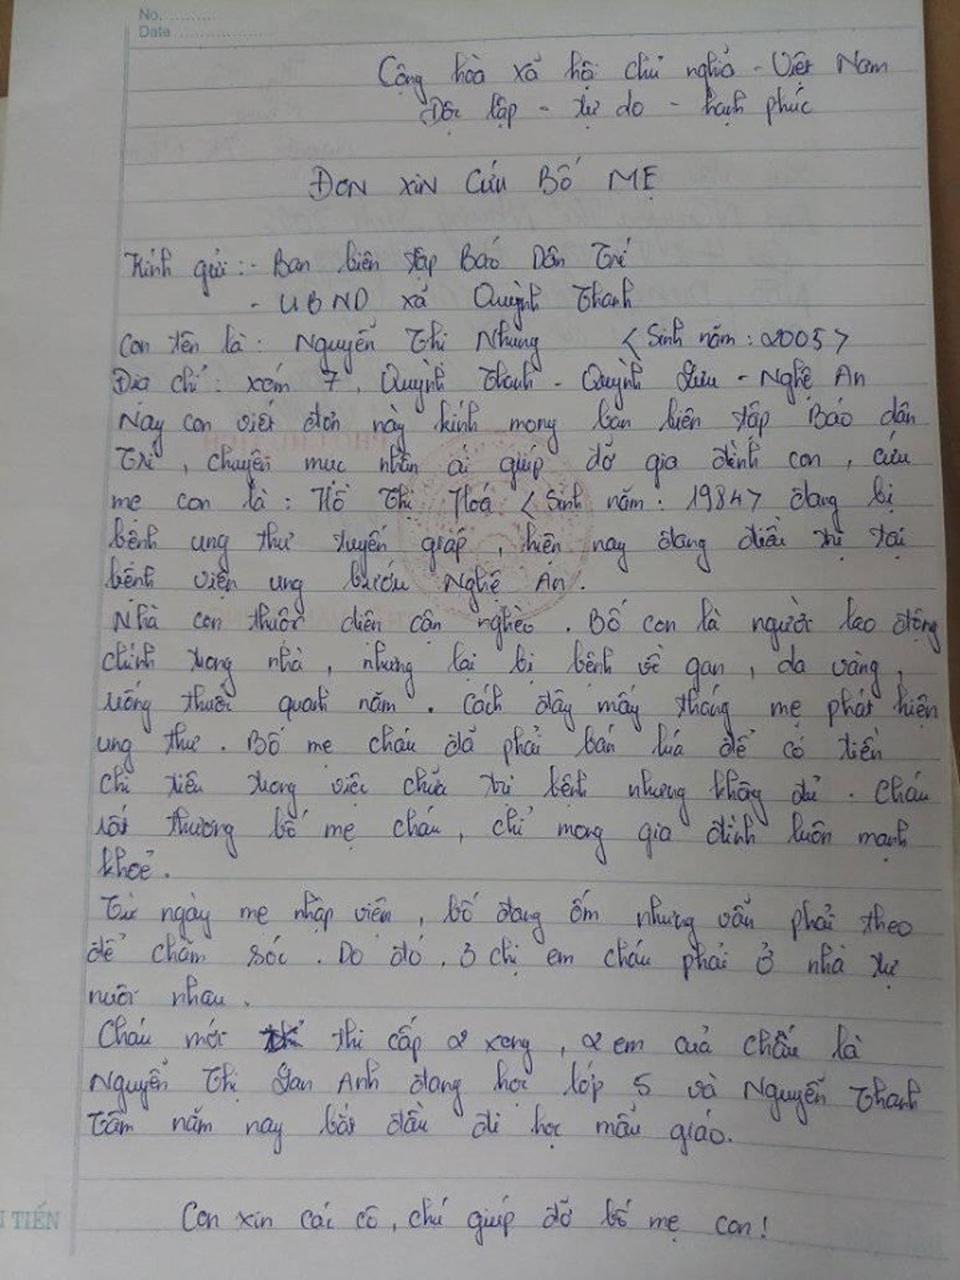 No. ..........
Date ....................
Cộng hòa xã hội chủ nghĩa - Việt Nam
Độc lập - tự do - hạnh phúc
ĐƠN XIN CỨU BỐ MẸ
Kính gửi : - Ban biên tập Báo Dân Trí
- UBND xã Quỳnh Thanh
Con tên là : Nguyễn Thị Nhung < Sinh năm : 2005 >
Địa chỉ : xóm 7, Quỳnh Thanh - Quỳnh Lưu - Nghệ An
Nay con viết đơn này kính mong ban biên tập Báo dân
Trí, chuyên mục nhân ái giúp đỡ gia đình con, cứu
mẹ con là : Hồ Thị Hoá < Sinh năm : 1984 > đang bị
bệnh ung thư tuyến giáp, hiện nay đang điều trị tại
bệnh viện ung bướu Nghệ An.
Nhà con thuộc diện cận nghèo. Bố con là người lao động
chính trong nhà, nhưng lại bị bệnh về gan, da vàng,
uống thuốc quanh năm. Cách đây mấy tháng mẹ phát hiện
ung thư. Bố mẹ cháu đã phải bán lúa để có tiền
chi tiêu trong việc chữa trị bệnh nhưng không đủ. Cháu
rất thương bố mẹ cháu, chỉ mong gia đình luôn mạnh
khoẻ.
Từ ngày mẹ nhập viện, bố đang ốm nhưng vẫn phải theo
để chăm sóc. Do đó, 3 chị em cháu phải ở nhà tự
nuôi nhau.
Cháu mới thi cấp 2 xong, 2 em của cháu là
Nguyễn Thị Lan Anh đang học lớp 5 và Nguyễn Thanh
Tâm năm nay bắt đầu đi học mẫu giáo.
Con xin các cô, chú giúp đỡ bố mẹ con!
TIẾN